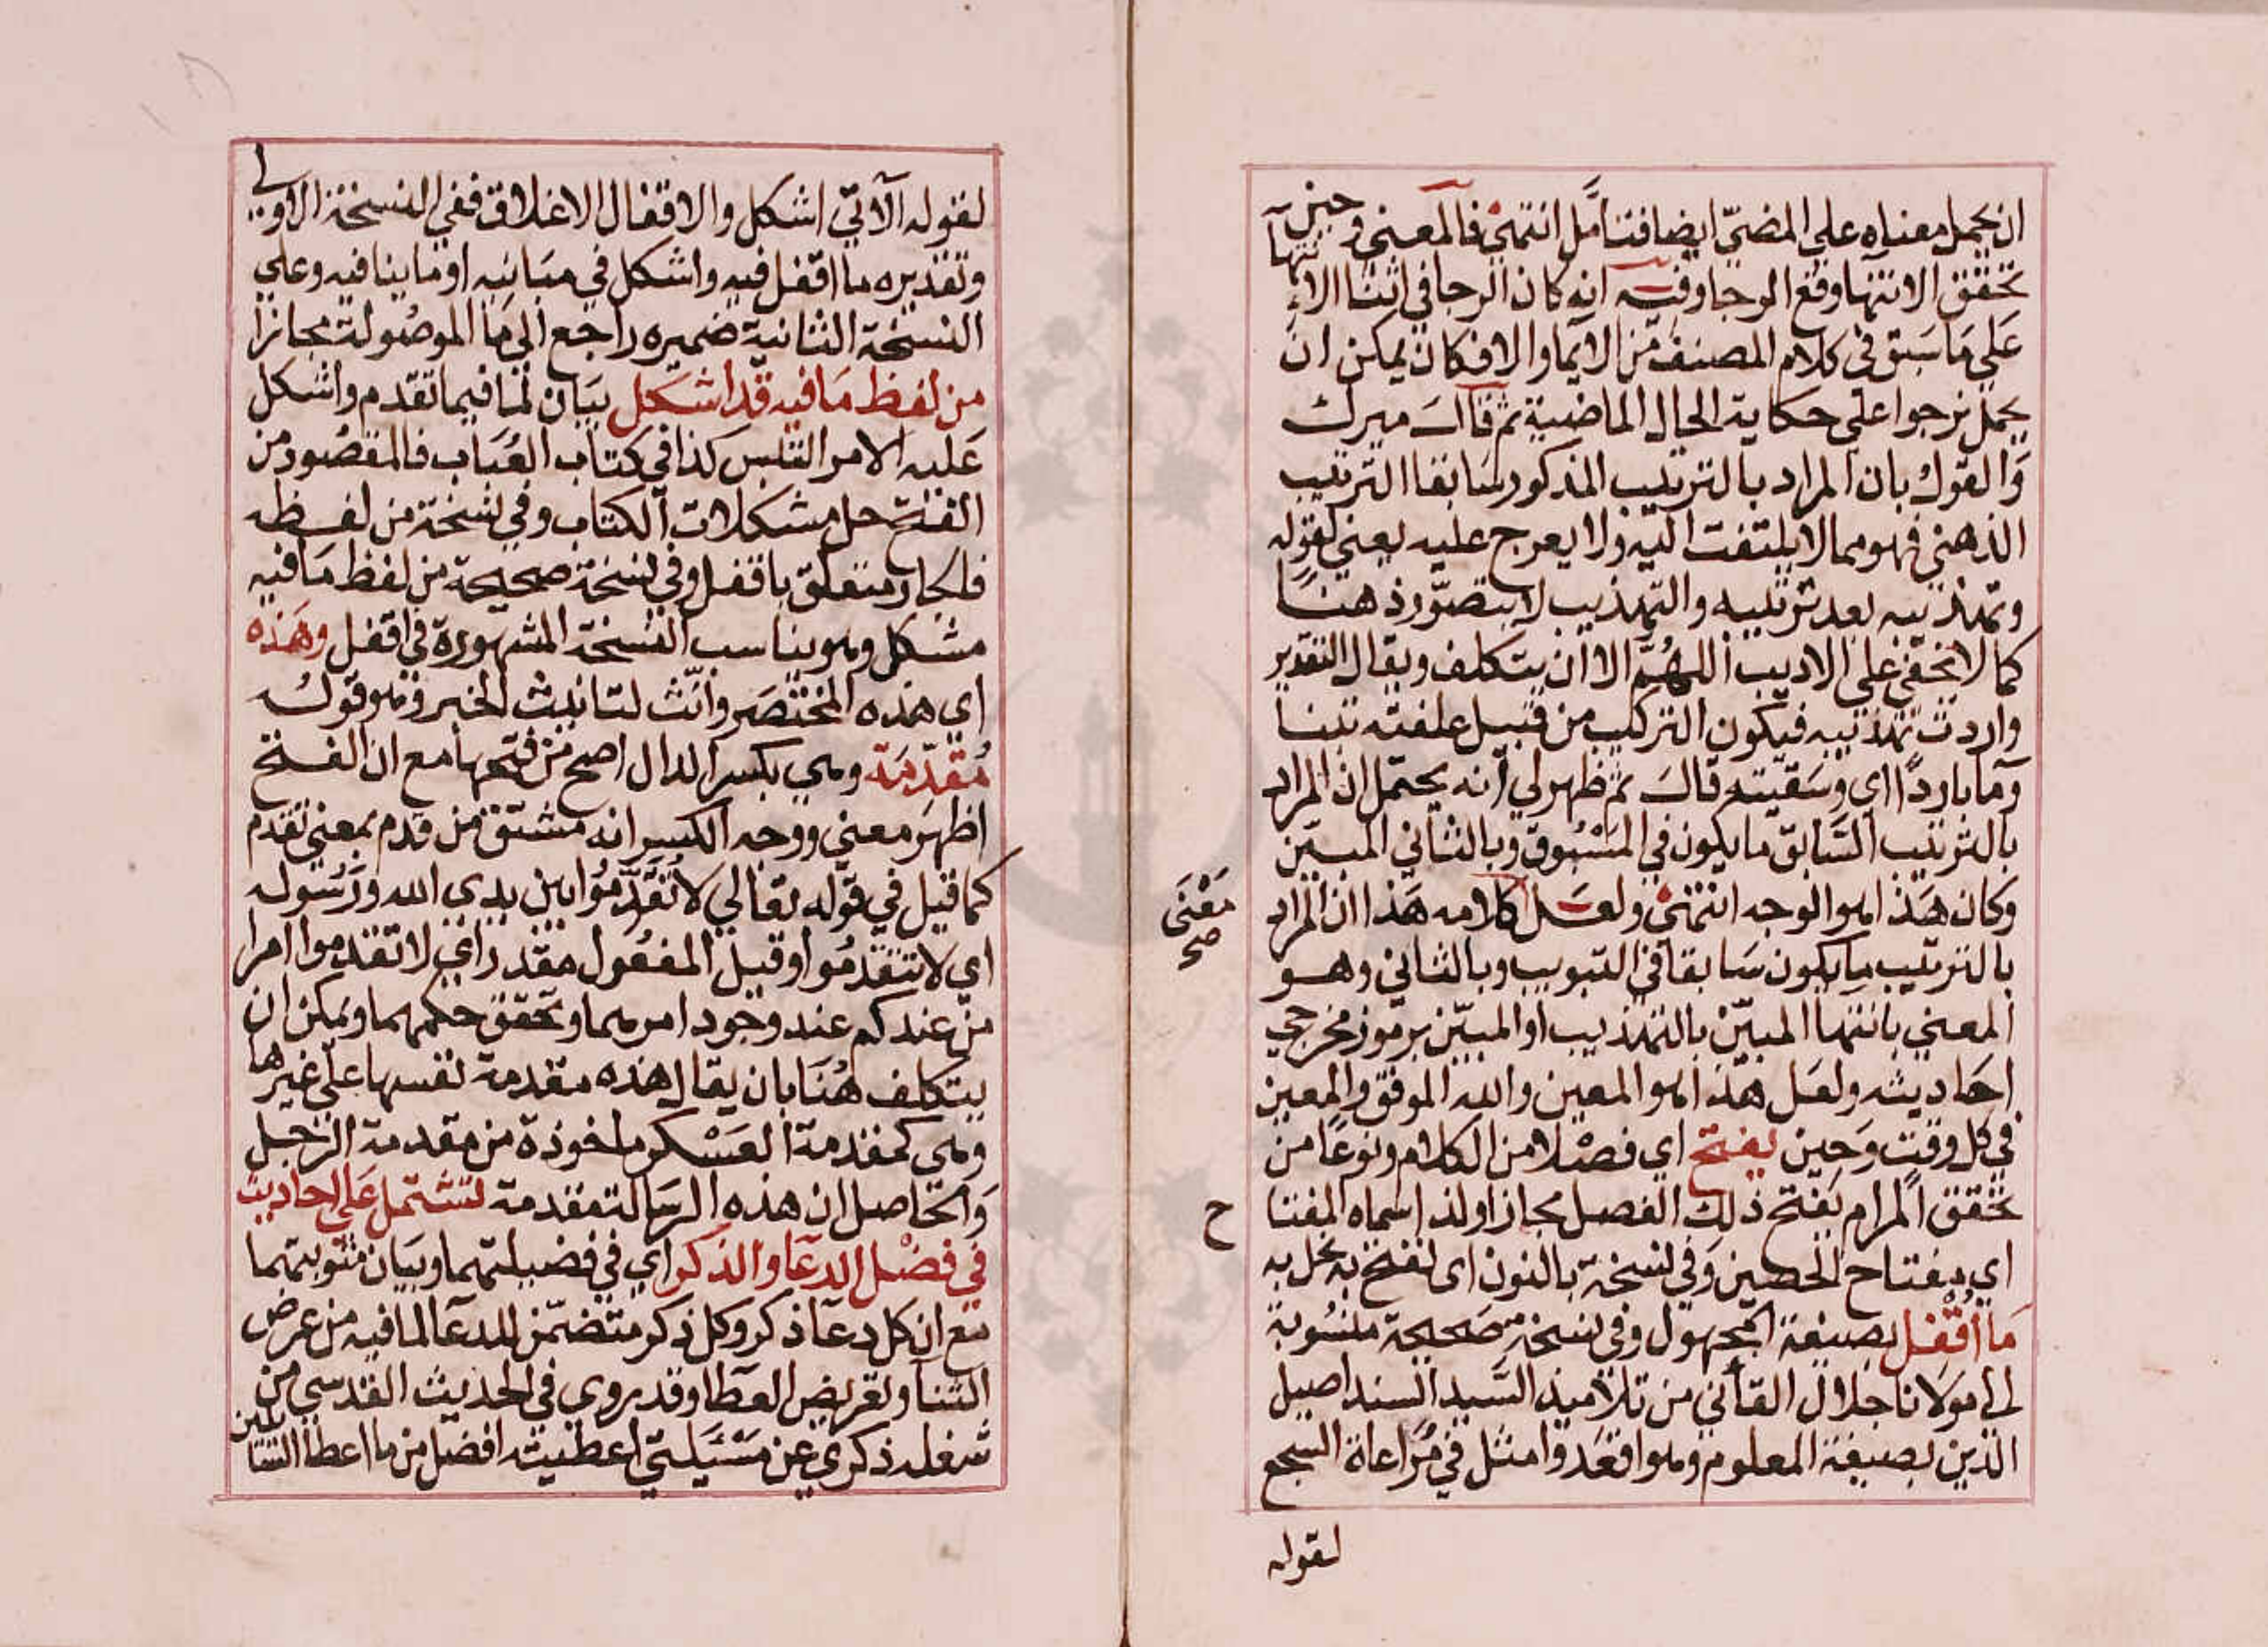 ان يحمل معناه علي المضيّ ايضا فتأمّل انتهي فالمعني وحين
تحقق الانتها وقع الرجا وفيه انه كان الرجا في اثنا الانتهآء
علي ما سبق في كلام المصنف من الايما والا فكان يمكن ان
يحمل نرجوا علي حكاية الحال الماضية ثم قال ميرك
والقول بان المراد بالترتيب المذكور سابقا الترتيب
الذهني فهو مما لا يلتفت اليه ولا يعرج عليه يعني لقوله
وتهذيبه بعد ترتيبه والتهذيب لا يتصوّر ذهنًا
كما لا يخفي علي الاديب اللهُمّ الا ان يتكلف ويقال التقدير
واردت تهذيبه فيكون التركيب من قبيل علفته تبنا
ومآ باردًا اي وسَقيته قال ثم ظهر لي انه يحتمل ان المراد
بالترتيب السّابق ما يكون في المَسْبُوق وبالثاني المبين
وكان هَذا هو الوجه انتهي ولعَل كلامه هَذا ان المراد
بالترتيب ما يكون سَابقا في التبويب وبالثاني وهو
المعني بانتها المبيّن بالتهذيب او المبيّن برموز مخرجي
احَاديثه ولعَل هذا هو المعين والله الموفق والمعين
في كل وقت وَحين يفتح اي فصْلا من الكلام ونوعًا من
تحقق المرام يَفتح ذلك الفصل مجازا ولذا سماه المفتا ح
اي مفتاح الحصين وَفي نسخة بالنون اى نفتح به نحل به
مَا اُقْفِل بصيغة المجهول وفي نسخة صَحيحة منسُوبة
الي مولانا جلال القائني من تلاميذ السَّيد السند اصيل
الدين بصيغة المعلوم وهو اقعَد وامثل في مُرَاعاة السجع
مَعْنَى
صح
لقوله
لقوله الآتي اشكل والاقفال الاغلاق ففي النسخة الاولي
وتقديره ما اقفل فيه واشكل في مبَانيه او مَا ينافيه وعلي
النسخة الثانية ضميره راجع الي مَا الموصُولة مجازا
من لفظ مَا فيه قد اشكل بيَان لمَا فيما تقدم واشكل
عَليه الامر التبس كذا في كتاب العُبَاب فالمقصُود من
الفتح حل مشكلات الكتاب وفي نسخة من لفظه
فالجار متعلق باقفل وفي نسخة صحيحة من لفظ مَا فيه
مشكل وهو يناسب النسخة المشهورة في اقفل وهَذه
اي هذه المختصَر وانّث لتانيث الخبر وهو قوله
مُقدّمَة وهي بكسر الدال اصح من فتحها مع ان الفتح
اظهَر معني ووجه الكسر انه مشتق من قدم بمعني تقدم
كما قيل في قوله تعَالي لا تُقَدِّمُوا بين يدى الله وَرَسُوله
اي لا تتقدّمُوا وقيل المفعُول مقدر اي لا تقدموا امرا
من عندكم عند وجود امرهما وتحقق حكمهما ويمكن ان
يتكلف هُنَا بان يقال هذه مقدمة نفسها علي غيرها
وهي كمقدمة العَسْكر ماخوذة من مقدمة الرَّحل
وَالحَاصل ان هذه الرسَالة مقدمة لتشتمل عَلي احاديث
في فضْل الدعَا والذكر اي في فضيلتهما وبيَان مثوبتهما
مَع ان كل دعآ ذكر وكل ذكر متضمّن للدعآ لما فيه من عرض
الثنآ وتعريض العطآ وقد يروي في الحديث القدسي من
شغله ذكري عن مسْئَيلتي اعطيته افضل من ما اعطا السّائلين